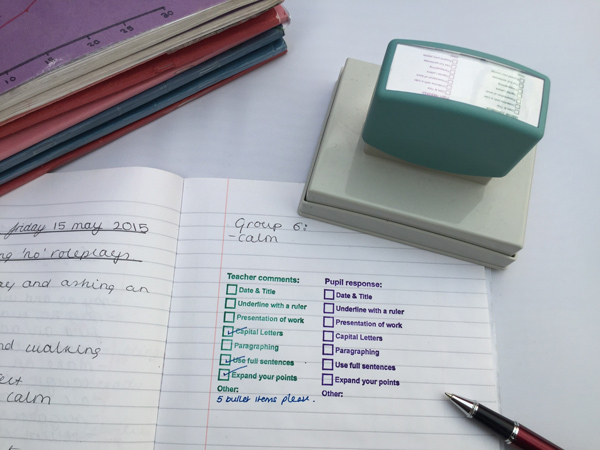 10 15 20 25 30
friday 15 may 2015
'no' roleplays
and asking an
walking
calm
Group 6:
-calm
Teacher comments:
Date & Title
Underline with a ruler
Presentation of work
Capital Letters
Paragraphing
Use full sentences
Expand your points
Other:
5 bullet items please.
Pupil response:
Date & Title
Underline with a ruler
Presentation of work
Capital Letters
Paragraphing
Use full sentences
Expand your points
Other: